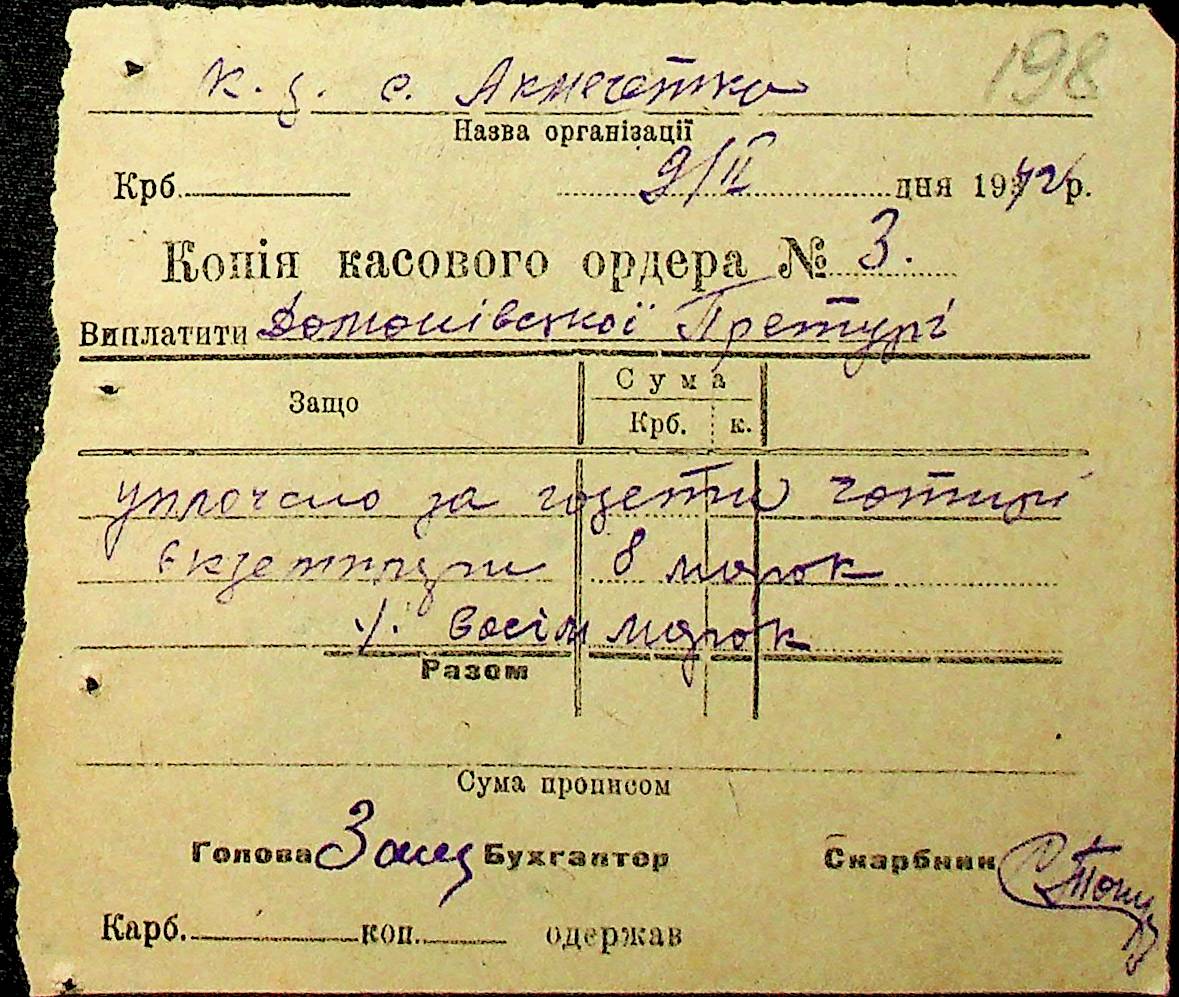 198
к. g. с. Акмечетка
Назва організації
Крб. 9/II дня 1942 р.
Копія касового ордера № 3.
Виплатити Доманівської Претурі
Защо Сума
Крб. к.
уплочено за газети чотирі
екземпляри 8 марок
·/· Восім марок
Разом
Сума прописом
Голова Бухгалтер Скарбник
Карб. коп. одержав